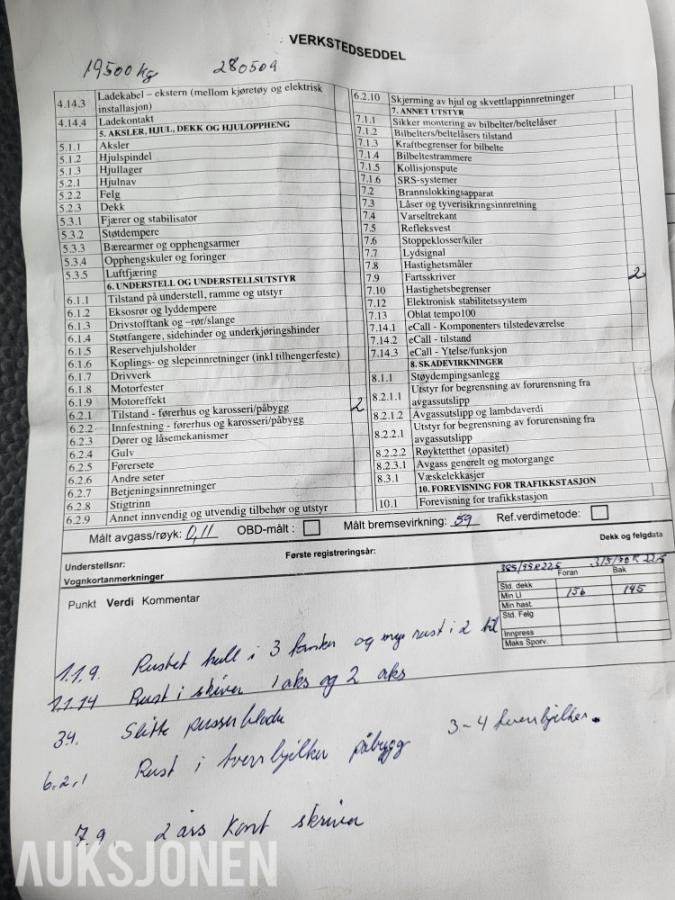 VERKSTEDSEDDEL
19500 kg 280509
4.14.3 Ladekabel – ekstern (mellom kjøretøy og elektrisk
installasjon)
4.14.4 Ladekontakt
5. AKSLER, HJUL, DEKK OG HJULOPPHENG
5.1.1 Aksler
5.1.2 Hjulspindel
5.1.3 Hjullager
5.2.1 Hjulnav
5.2.2 Felg
5.2.3 Dekk
5.3.1 Fjærer og stabilisator
5.3.2 Støtdempere
5.3.3 Bærearmer og opphengsarmer
5.3.4 Opphengskuler og foringer
5.3.5 Luftfjæring
6. UNDERSTELL OG UNDERSTELLSUTSTYR
6.1.1 Tilstand på understell, ramme og utstyr
6.1.2 Eksosrør og lyddempere
6.1.3 Drivstofftank og –rør/slange
6.1.4 Støtfangere, sidehinder og underkjøringshinder
6.1.5 Reservehjulsholder
6.1.6 Koplings- og slepeinnretninger (inkl tilhengerfeste)
6.1.7 Drivverk
6.1.8 Motorfester
6.1.9 Motoreffekt
6.2.1 Tilstand - førerhus og karosseri/påbygg 2
6.2.2 Innfestning - førerhus og karosseri/påbygg
6.2.3 Dører og låsemekanismer
6.2.4 Gulv
6.2.5 Førersete
6.2.6 Andre seter
6.2.7 Betjeningsinnretninger
6.2.8 Stigtrinn
6.2.9 Annet innvendig og utvendig tilbehør og utstyr
6.2.10 Skjerming av hjul og skvettlappinnretninger
7. ANNET UTSTYR
7.1.1 Sikker montering av bilbelter/beltelåser
7.1.2 Bilbelters/beltelåsers tilstand
7.1.3 Kraftbegrenser for bilbelte
7.1.4 Bilbeltestrammere
7.1.5 Kollisjonspute
7.1.6 SRS-systemer
7.2 Brannslokkingsapparat
7.3 Låser og tyverisikringsinnretning
7.4 Varseltrekant
7.5 Refleksvest
7.6 Stoppeklosser/kiler
7.7 Lydsignal
7.8 Hastighetsmåler
7.9 Fartsskriver 2
7.10 Hastighetsbegrenser
7.12 Elektronisk stabilitetssystem
7.13 Oblat tempo100
7.14.1 eCall - Komponenters tilstedeværelse
7.14.2 eCall - tilstand
7.14.3 eCall - Ytelse/funksjon
8. SKADEVIRKNINGER
8.1.1 Støydempingsanlegg
8.2.1.1 Utstyr for begrensning av forurensning fra
avgassutslipp
8.2.1.2 Avgassutslipp og lambdaverdi
8.2.2.1 Utstyr for begrensning av forurensning fra
avgassutslipp
8.2.2.2 Røyktetthet (opasitet)
8.2.3.1 Avgass generelt og motorgange
8.3.1 Væskelekkasjer
10. FOREVISNING FOR TRAFIKKSTASJON
10.1 Forevisning for trafikkstasjon
Målt avgass/røyk: 0,11 OBD-målt : Målt bremsevirkning: 59 Ref.verdimetode:
Understellsnr: Første registreringsår: Dekk og felgdata
Vognkortanmerkninger
385/55R22.5 315/70R22.5
Foran Bak
Std. dekk
Min LI 156 145
Min hast.
Std. Felg
Innpress
Maks Sporv.
Punkt Verdi Kommentar
1.1.9. Rustet hull i 3 tanker og mye rust i 2 til
1.1.14 Rust i skiver 1 aks og 2 aks
34. Slitte pusserblade
6.2.1 Rust i tverrbjelker påbygg 3-4 tverrbjelker.
7.9 2 års Kont skriver
AUKSJONEN